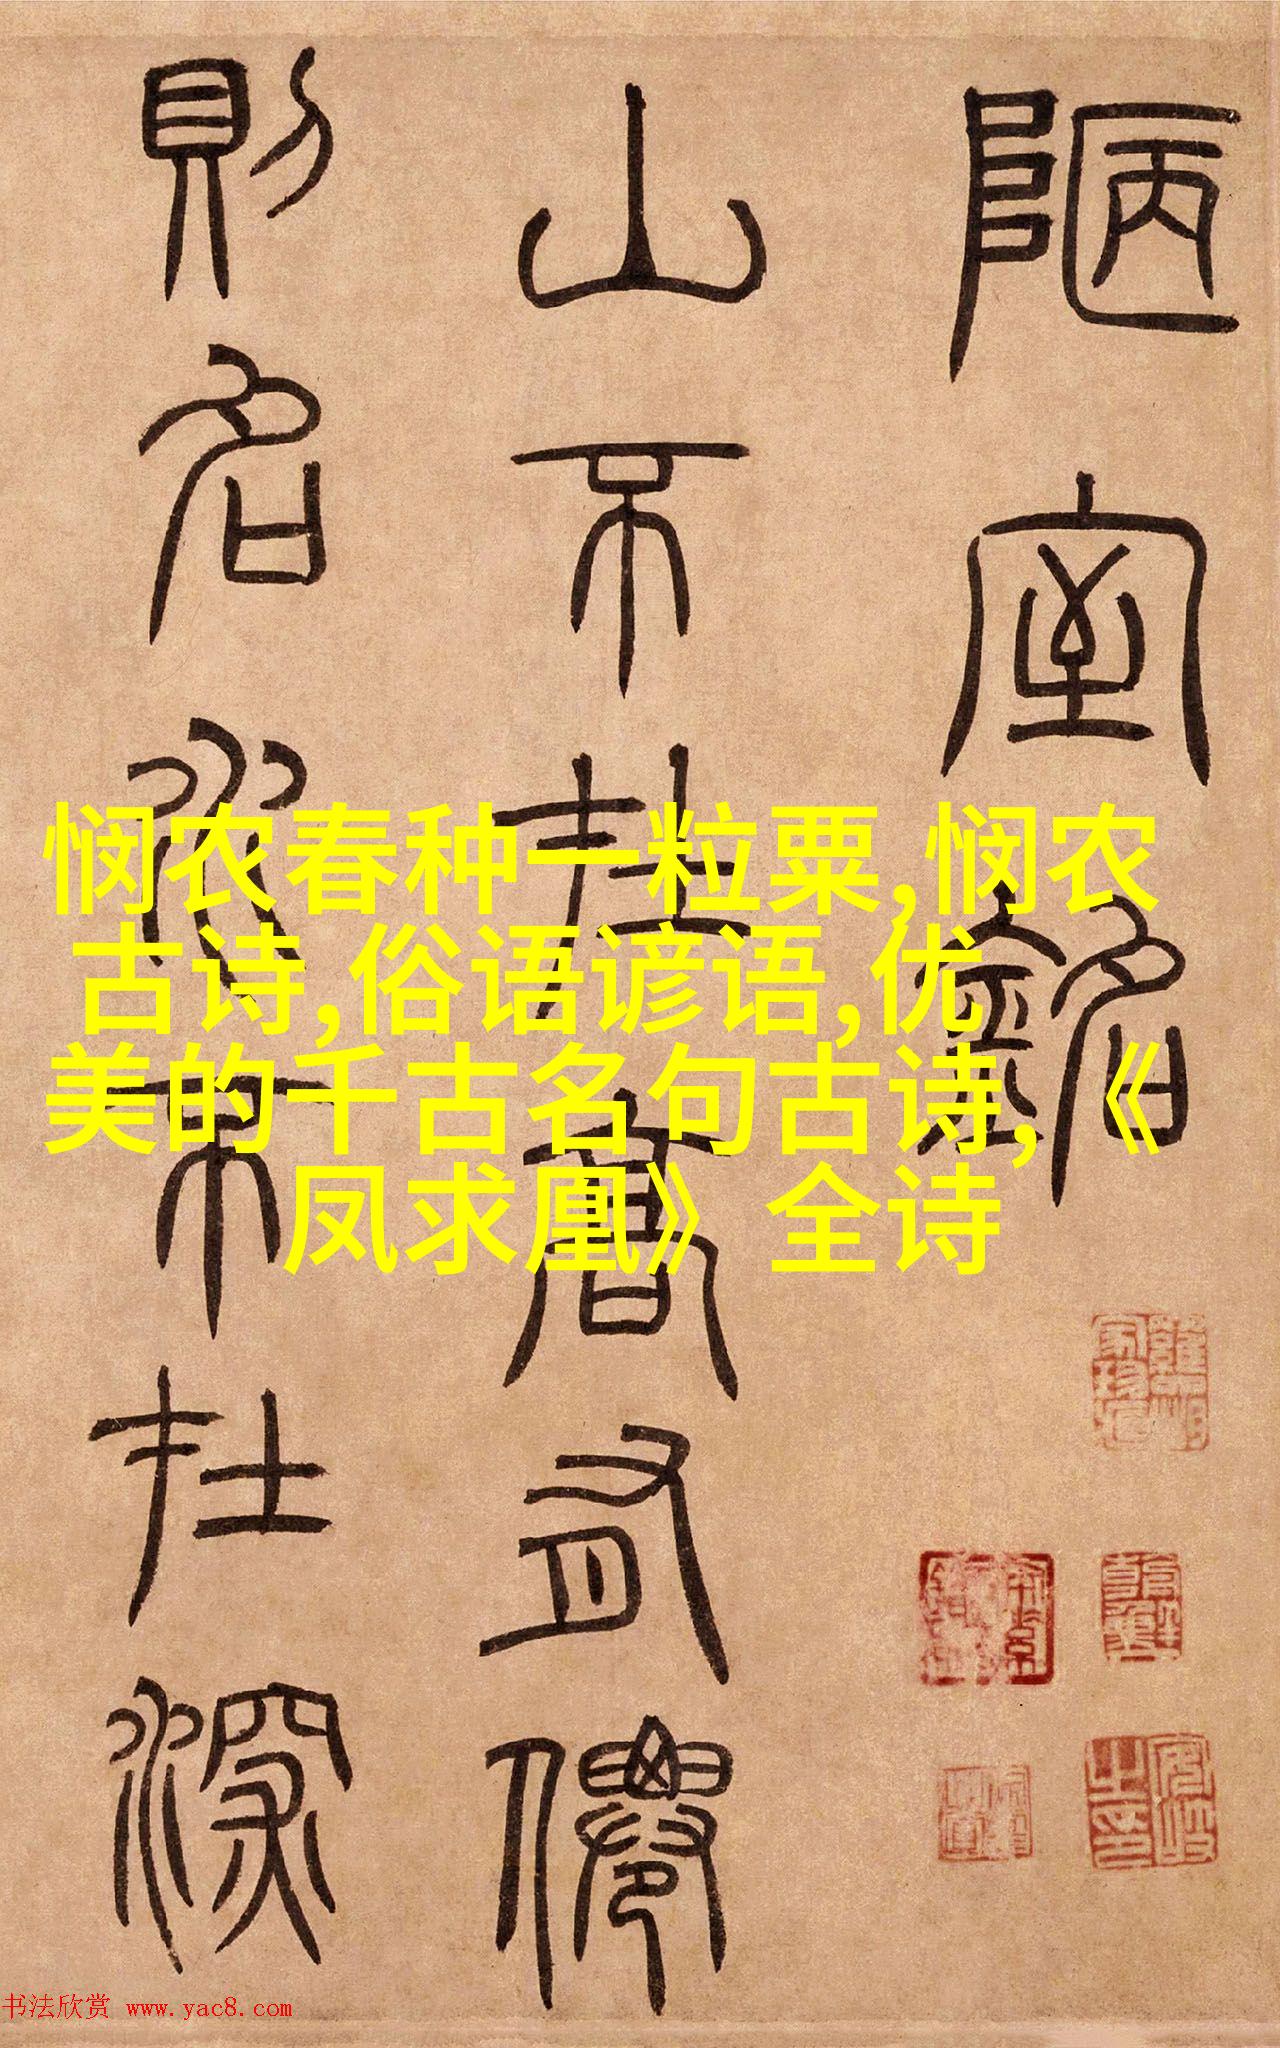 陋室銘
山不在高有僊
則名水不在深
悯农春种一粒粟,悯农
古诗,俗语谚语,优
美的千古名句古诗,《
凤求凰》全诗
书法欣赏 www.yac8.com